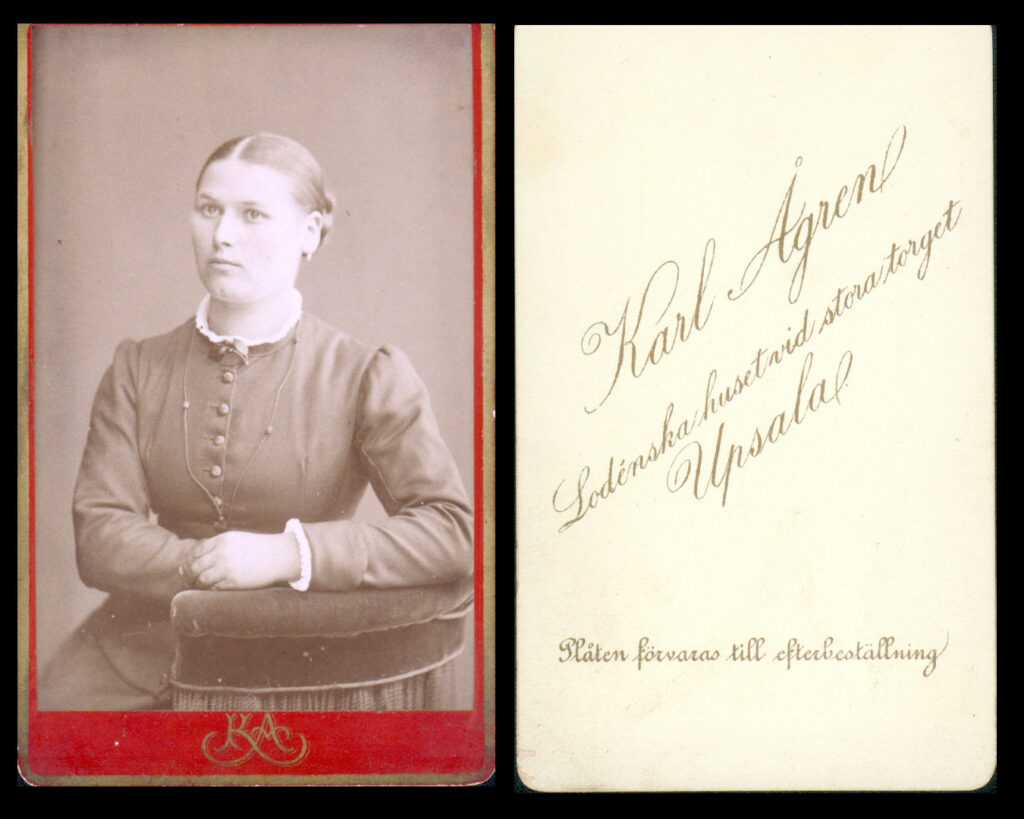 KA
Karl Ågren
Lodénska huset vid stora torget
Upsala
Plåten förvaras till efterbeställning